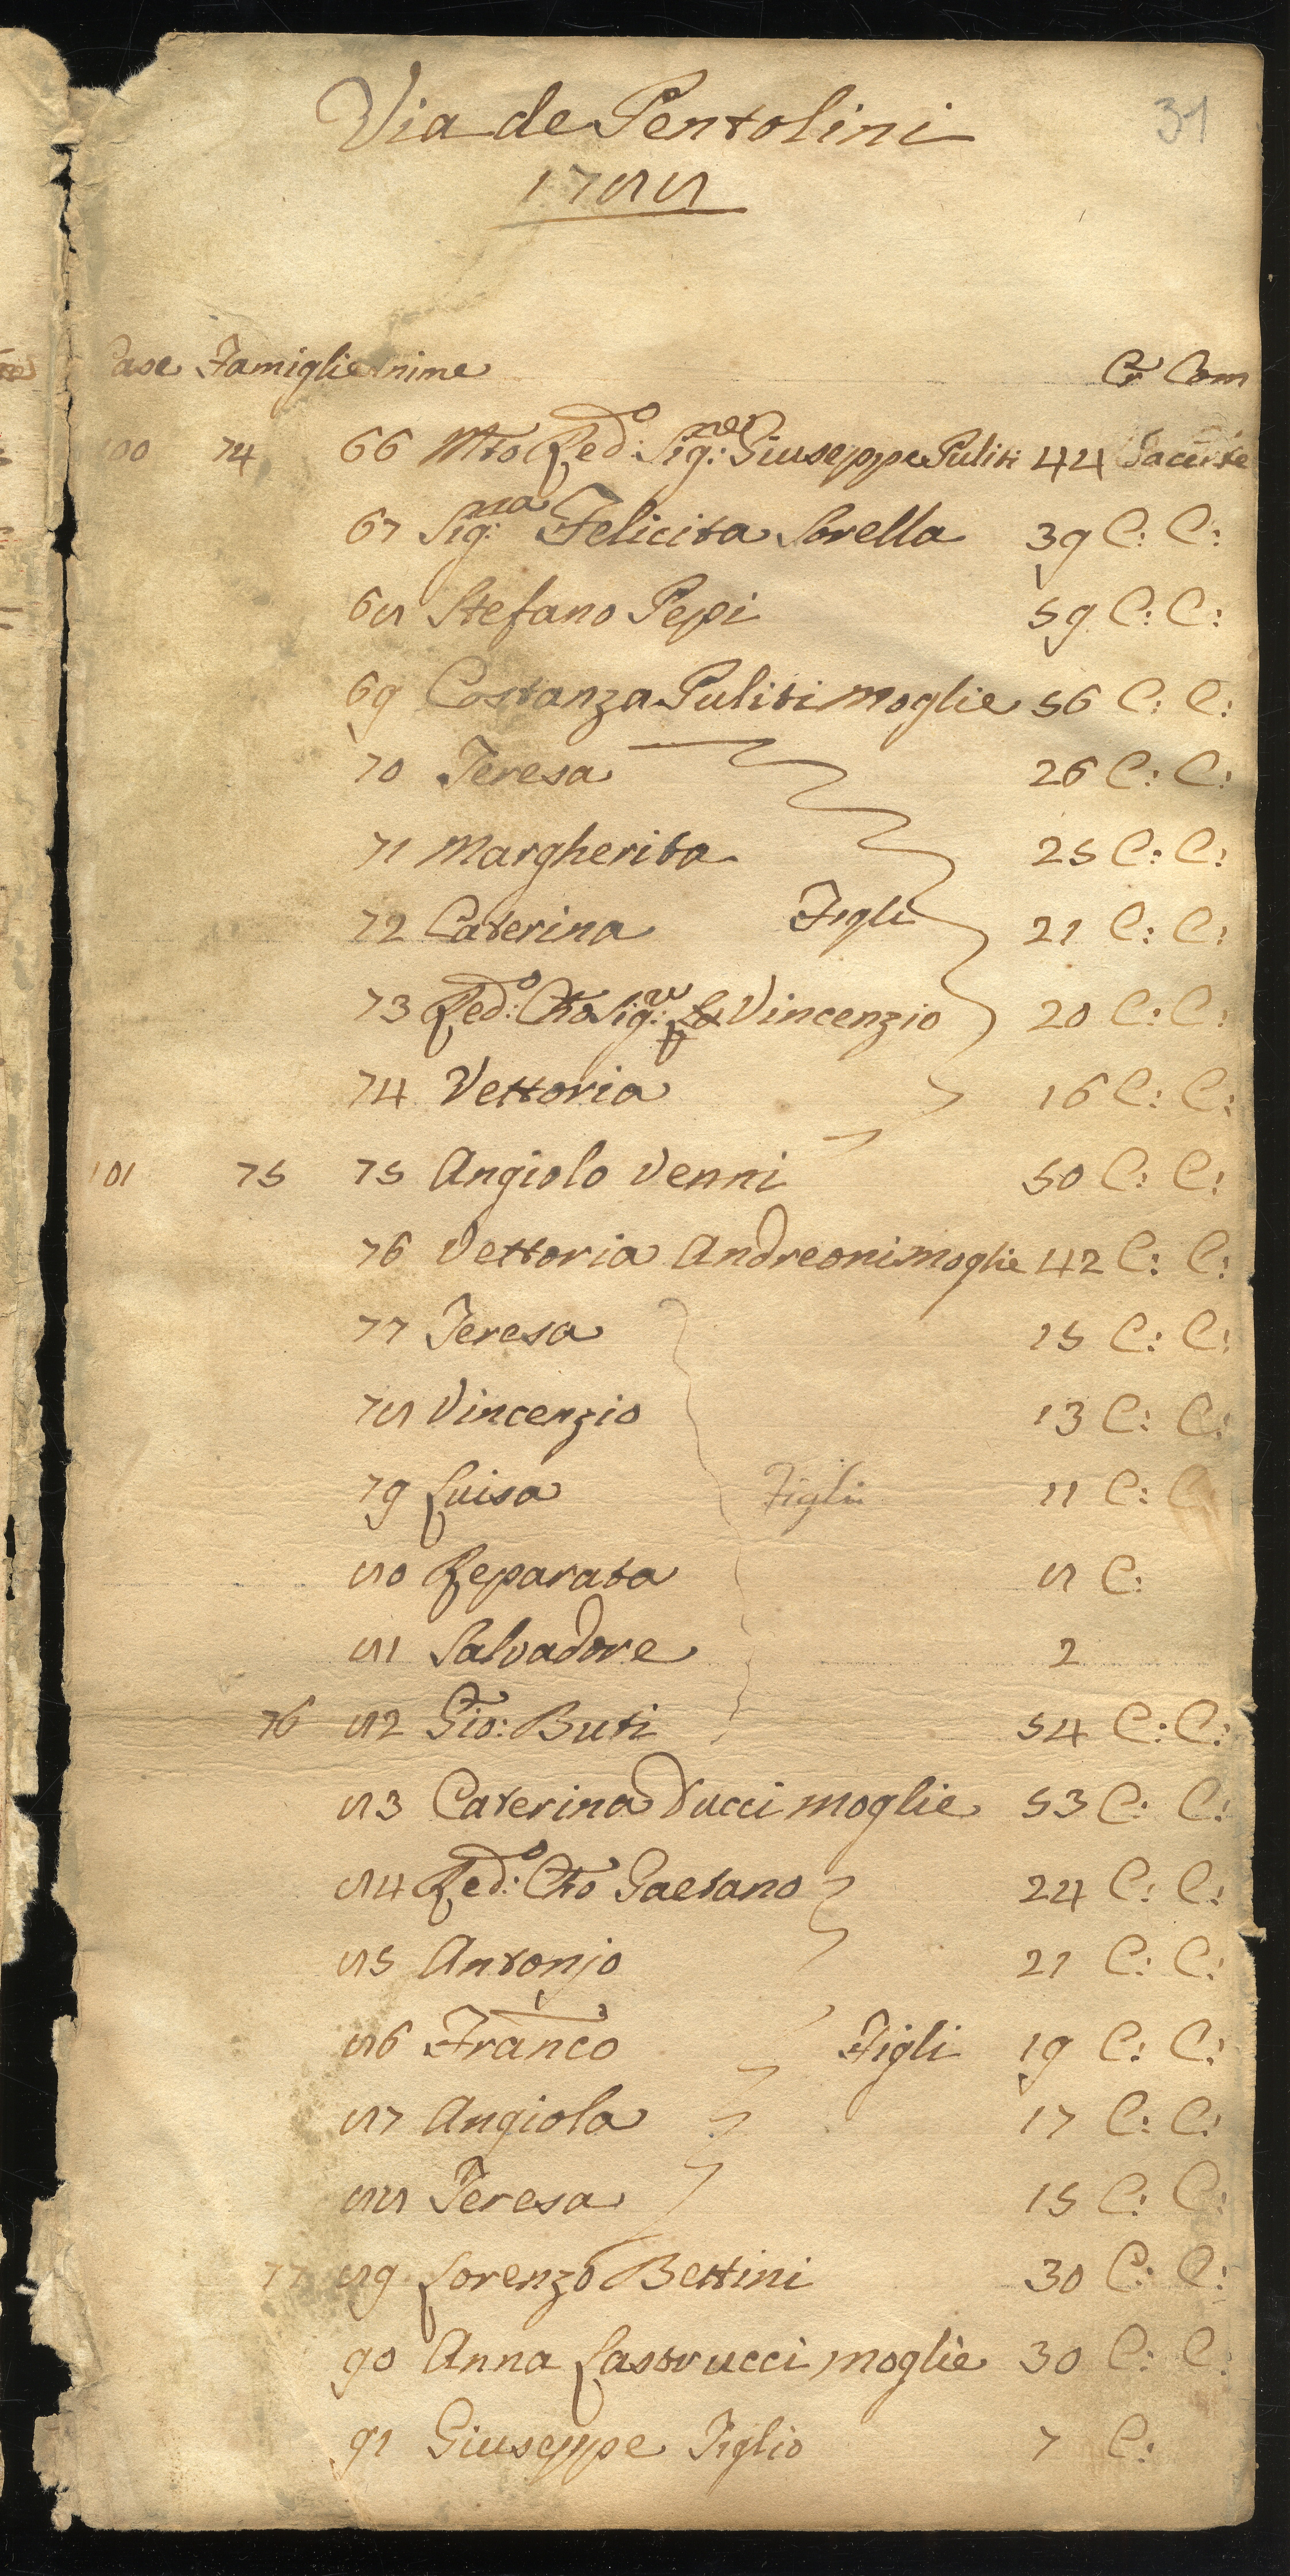 Via de Pentolini
31
1788
Case Famiglie Anime Cr Com
100 74 66 Mto Red:o Sig:re Giuseppe Puliti 44 Sacerte
67 Sig:ra Felicita Sorella 39 C: C:
68 Stefano Pepi 59 C: C:
69 Costanza Puliti moglie 56 C: C:
70 Teresa 26 C: C:
71 Margherita 25 C: C:
72 Caterina Figli 21 C: C:
73 Red:o Cho Sig:re Vincenzio 20 C: C:
74 Vettoria 16 C: C:
101 75 75 Angiolo Venni 50 C: C:
76 Vettoria Andreoni moglie 42 C: C:
77 Teresa 15 C: C:
78 Vincenzio 13 C: C:
79 Luisa Figli 11 C: C
80 Reparata 8 C:
81 Salvadore 2
76 82 Gio: Buti 54 C: C:
83 Caterina Ducci moglie 53 C: C:
84 Red:o Cho Gaetano 24 C: C:
85 Antonjo 21 C: C:
86 Franco Figli 19 C: C:
87 Angiola 17 C: C:
88 Teresa 15 C: C:
77 89 Lorenzo Bettini 30 C: C:
90 Anna Lastrucci moglie 30 C: C:
91 Giuseppe Figlio 7 C: